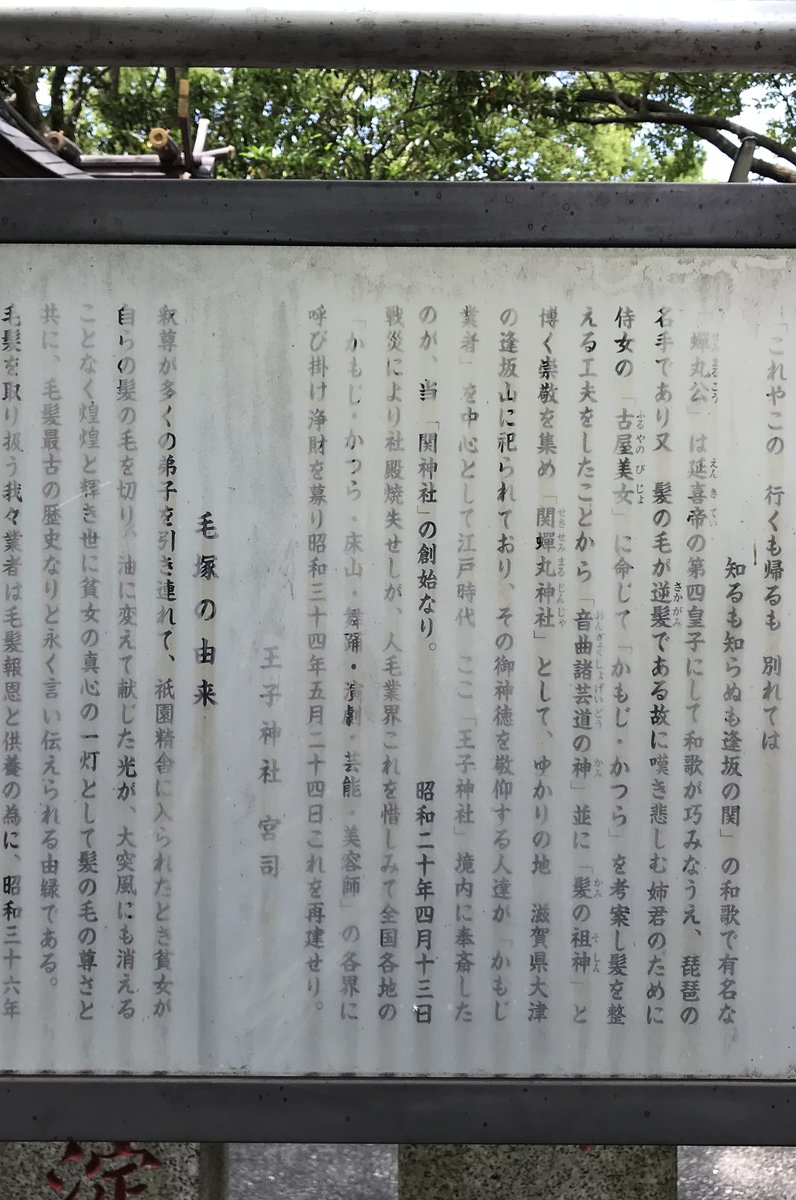 「これやこの　行くも帰るも　別れては
知るも知らぬも逢坂の関」の和歌で有名な
「蟬丸公」は延喜帝の第四皇子にして和歌が巧みなうえ、琵琶の
名手であり又　髪の毛が逆髪である故に嘆き悲しむ姉君のために
侍女の「古屋美女」に命じて「かもじ・かつら」を考案し髪を整
える工夫をしたことから「音曲諸芸道の神」並に「髪の祖神」と
博く崇敬を集め「関蟬丸神社」として、ゆかりの地　滋賀県大津
の逢坂山に祀られており、その御神徳を敬仰する人達が「かもじ
業者」を中心として江戸時代　ここ「王子神社」境内に奉斎した
のが、当「関神社」の創始なり。　昭和二十年四月十三日
戦災により社殿焼失せしが、人毛業界これを惜しみて全国各地の
「かもじ・かつら・床山・舞踊・演劇・芸能・美容師」の各界に
呼び掛け浄財を募り昭和三十四年五月二十四日これを再建せり。
王子神社　宮司
毛塚の由来
釈尊が多くの弟子を引き連れて、祇園精舎に入られたとき貧女が
自らの髪の毛を切り、油に変えて献じた光が、大突風にも消える
ことなく煌煌と輝き世に貧女の真心の一灯として髪の毛の尊さと
共に、毛髪最古の歴史なりと永く言い伝えられる由縁である。
毛髪を取り扱う我々業者は毛髪報恩と供養の為に、昭和三十六年
淀